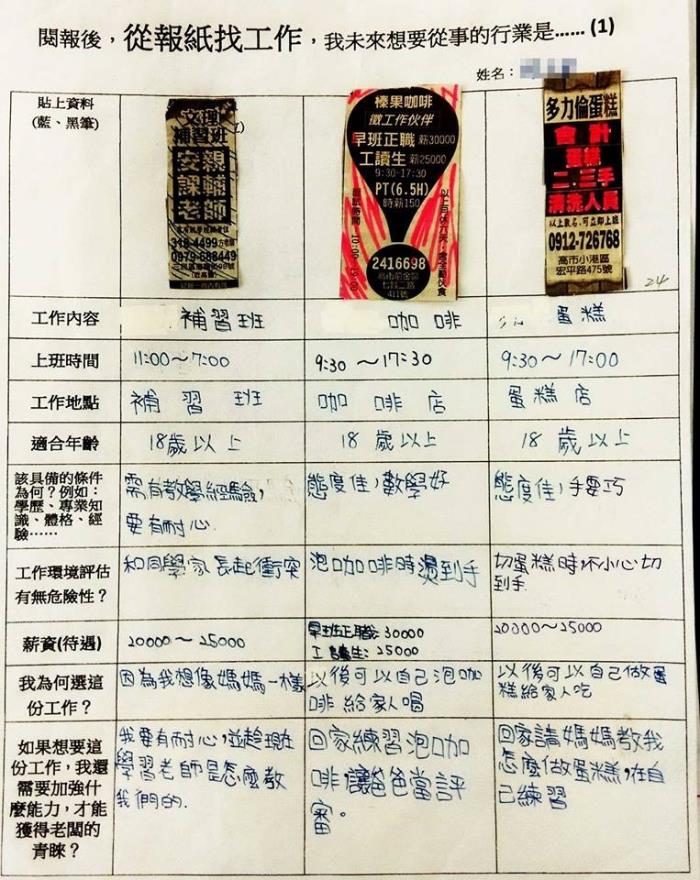 閱報後，從報紙找工作，我未來想要從事的行業是……(1)
姓名：
貼上資料
(藍、黑筆)
文理
補習班
安親
課輔
老師
318-4499
0979-688449
榛果咖啡
徵工作伙伴
早班正職 薪30000
工讀生 薪25000
9:30-17:30
PT(6.5H)
時薪150
2416698
高市前金區
七賢二路
411號
多力倫蛋糕
會計
蛋糕
二.三手
清洗人員
以上數名.可立即上班
0912-726768
高市小港區
宏平路475號
24
工作內容 補習班 咖啡 蛋糕
上班時間 11:00～7:00 9:30～17:30 9:30～17:00
工作地點 補習班 咖啡店 蛋糕店
適合年齡 18歲以上 18歲以上 18歲以上
該具備的條件
為何？例如：
學歷、專業知
識、體格、經
驗……
需有教學經驗，
要有耐心.
態度佳，數學好
態度佳，手要巧
工作環境評估
有無危險性？
和同學家長起衝突
泡咖啡時燙到手
切蛋糕時不小心切
到手.
薪資(待遇)
20000～25000
早班正職：30000
工讀生：25000
20000～25000
我為何選這
份工作？
因為我想像媽媽一樣
以後可以自己泡咖
啡給家人喝
以後可以自己做蛋
糕給家人吃
如果想要這
份工作，我還
需要加強什
麼能力，才能
獲得老闆的
青睞？
我要有耐心，並趁現在
學習老師是怎麼教
我們的.
回家練習泡咖
啡讓爸爸當評
審。
回家請媽媽教我
怎麼做蛋糕，在自
己練習